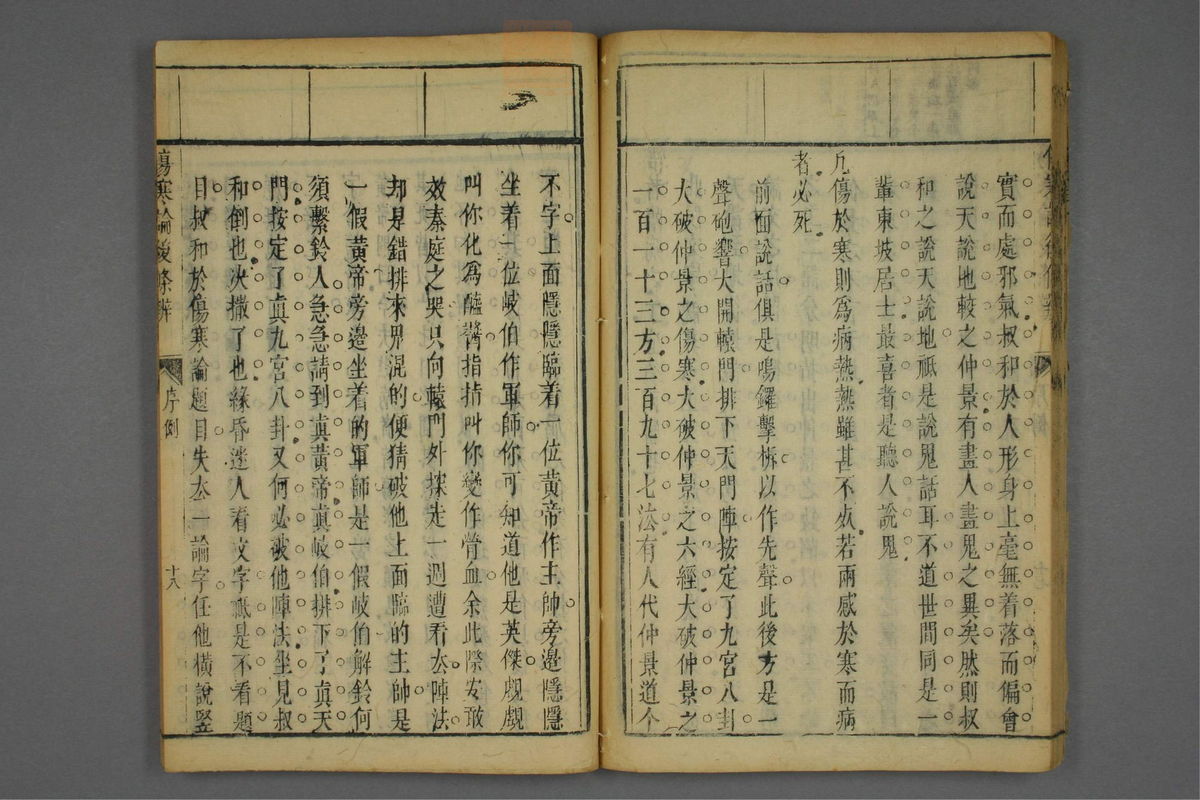 實而處邪氣叔和於人形身上毫無着落而偏會
說天說地較之仲景有畫人畫鬼之異矣然則叔
和之說天說地祇是說鬼話耳不道世間同是一
輩東坡居士最喜者是聽人說鬼
凡傷於寒則爲病熱熱雖甚不死若兩感於寒而病
者必死
前面說話俱是鳴鑼擊柝以作先聲此後方是一
聲砲響大開轅門排下天門陣按定了九宮八卦
大破仲景之傷寒大破仲景之六經大破仲景之
一百一十三方三百九十七法有人代仲景道个
不字上面隱隱臨着一位黃帝作主帥旁邊隱隱
坐着一位岐伯作軍師你可知道他是英傑覷覷
叫你化爲醯醬指指叫你變作膋血余此際安敢
效秦庭之哭只向轅門外探走一週遭看去陣法
却是錯排來界混的便猜破他上面臨的主帥是
一假黃帝旁邊坐着的軍師是一假岐伯解鈴何
須繫鈴人急急請到眞黃帝眞岐伯排下了眞天
門按定了眞九宮八卦又何必破他陣法坐見叔
和倒也決撒了也緣昏迷人看文字祇是不看題
目叔和於傷寒論題目失去一論字任他橫說豎
傷寒論後條辨
序例
十八